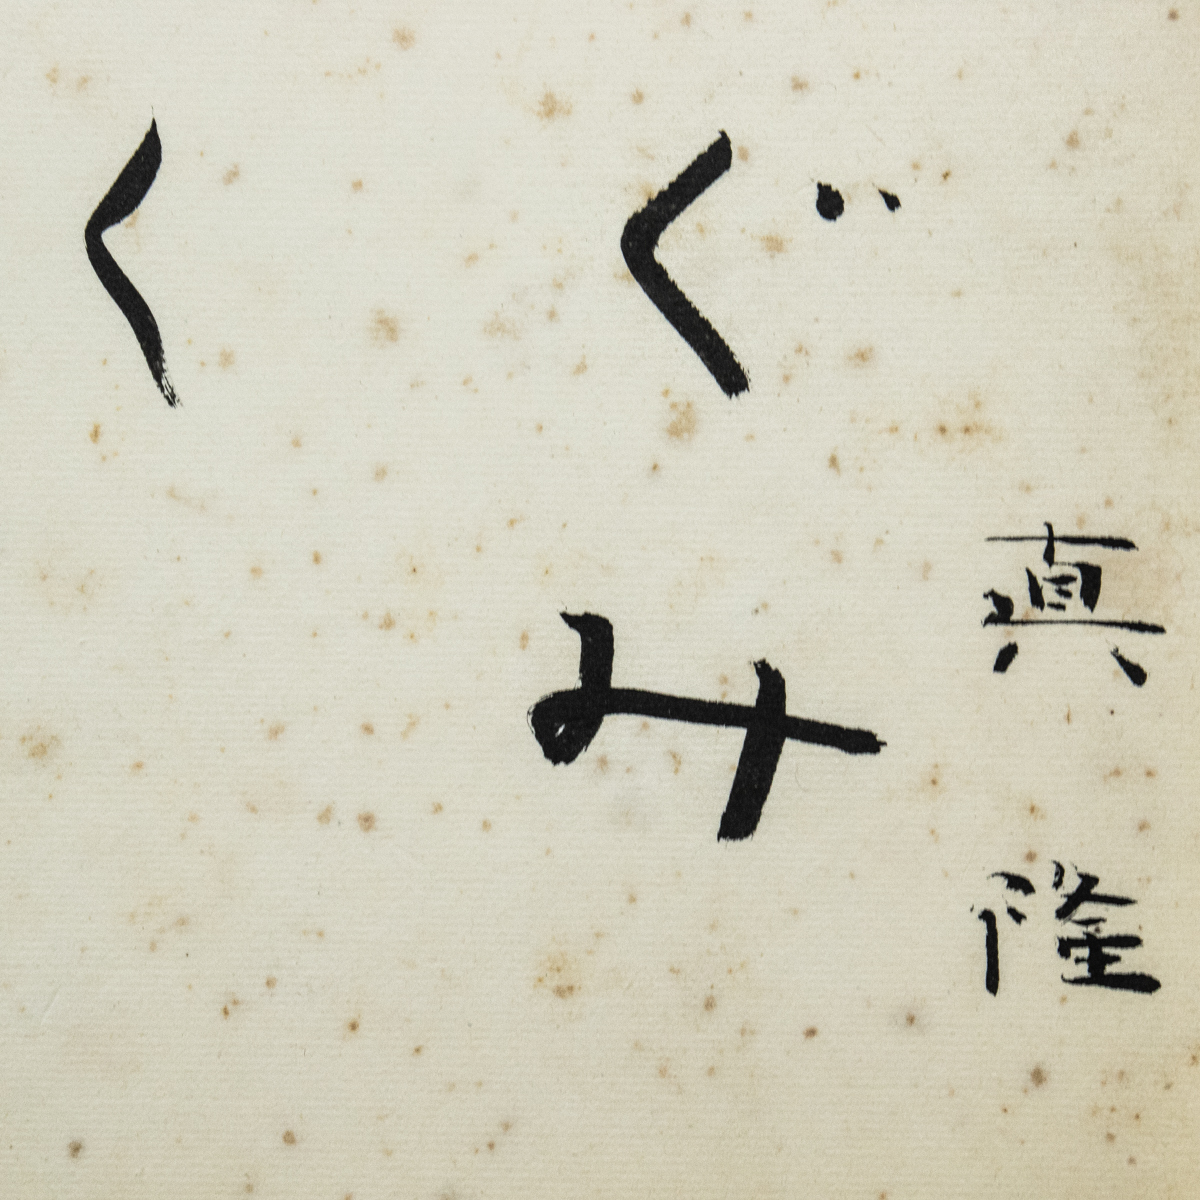 真隆
ぐみ
く